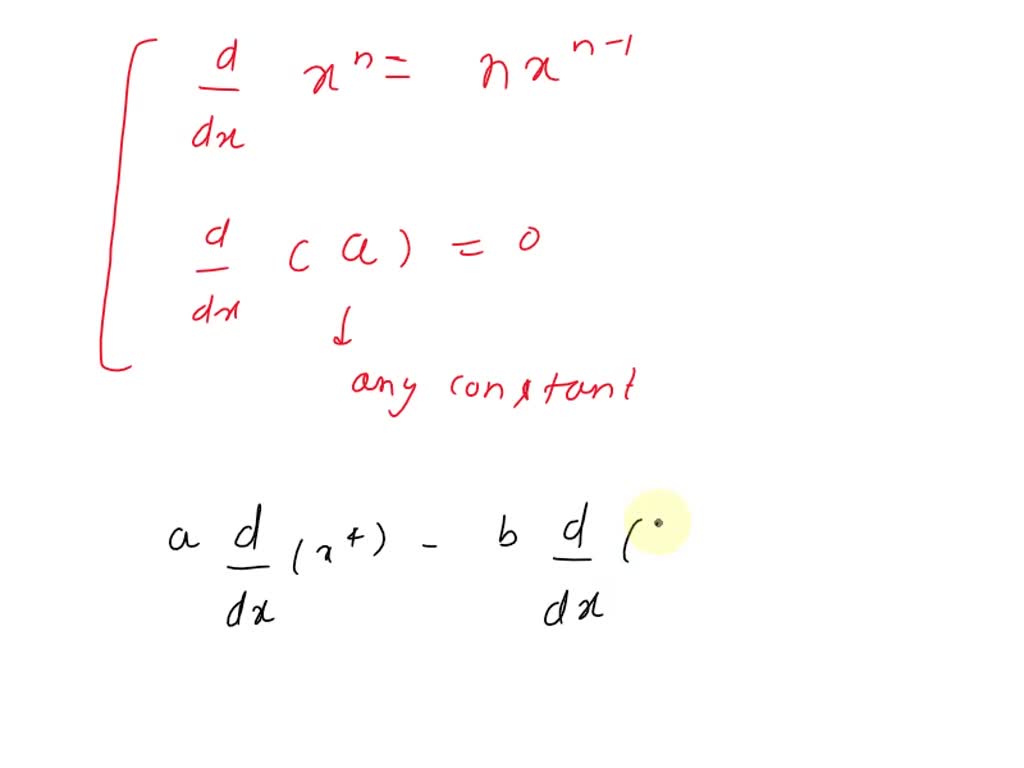 d/dx xⁿ = nxⁿ⁻¹
d/dx (a) = 0
↓
any constant
a d/dx (x⁴) - b d/dx (